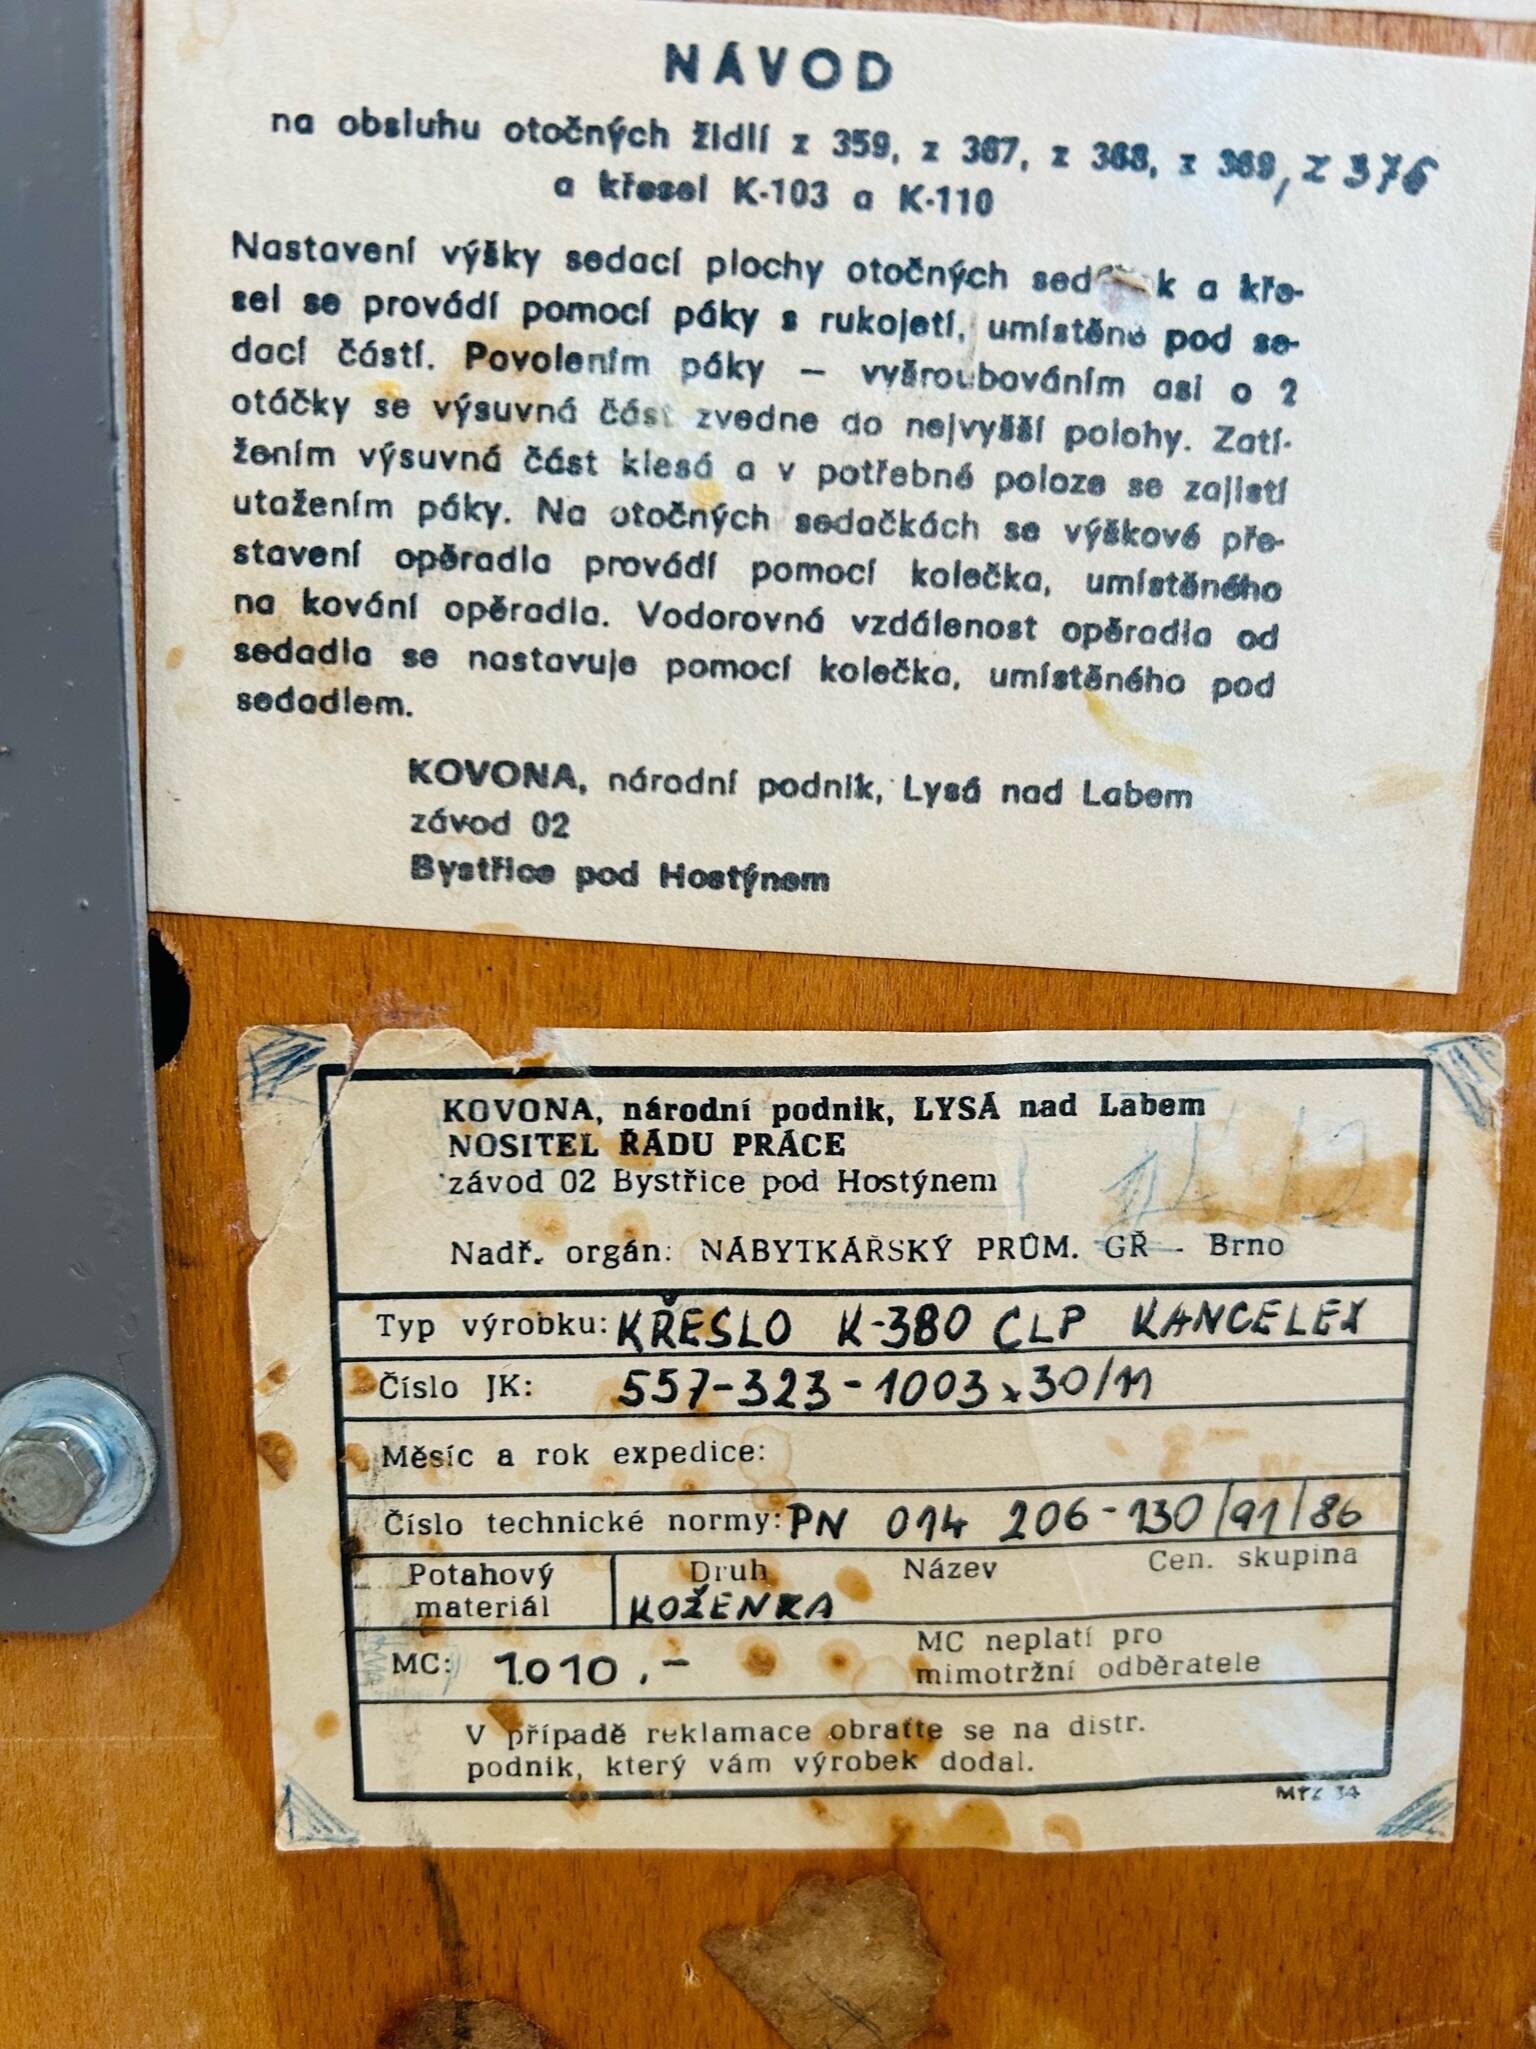 NÁVOD
na obsluhu otočných židlí z 359, z 367, z 368, z 369, z 376
a křesel K-103 a K-110
Nastavení výšky sedací plochy otočných k a kře-
sel se provádí pomocí páky s rukojetí, umístěné pod se-
dací částí. Povolením páky — vyšroubováním asi o 2
otáčky se výsuvná část zvedne do nejvyšší polohy. Zatí-
žením výsuvná část klesá a v potřebné poloze se zajistí
utažením páky. Na otočných sedačkách se výškové pře-
stavení opěradla provádí pomocí kolečka, umístěného
na kování opěradla. Vodorovná vzdálenost opěradla od
sedadla se nastavuje pomocí kolečka, umístěného pod
sedadlem.
KOVONA, národní podnik, Lysá nad Labem
závod 02
Bystřice pod Hostýnem
KOVONA, národní podnik, LYSÁ nad Labem
NOSITEL ŘÁDU PRÁCE
závod 02 Bystřice pod Hostýnem
Nadř. orgán: NÁBYTKÁŘSKÝ PRŮM. GŘ - Brno
Typ výrobku: KŘESLO K-380 CLP KANCELEX
Číslo JK: 557-323-1003x30/11
Měsíc a rok expedice:
Číslo technické normy: PN 014 206-130/91/86
Potahový Druh Název Cen. skupina
materiál KOŽENKA
MC: 1.010,- MC neplatí pro
mimotržní odběratele
V případě reklamace obraťte se na distr.
podnik, který vám výrobek dodal.